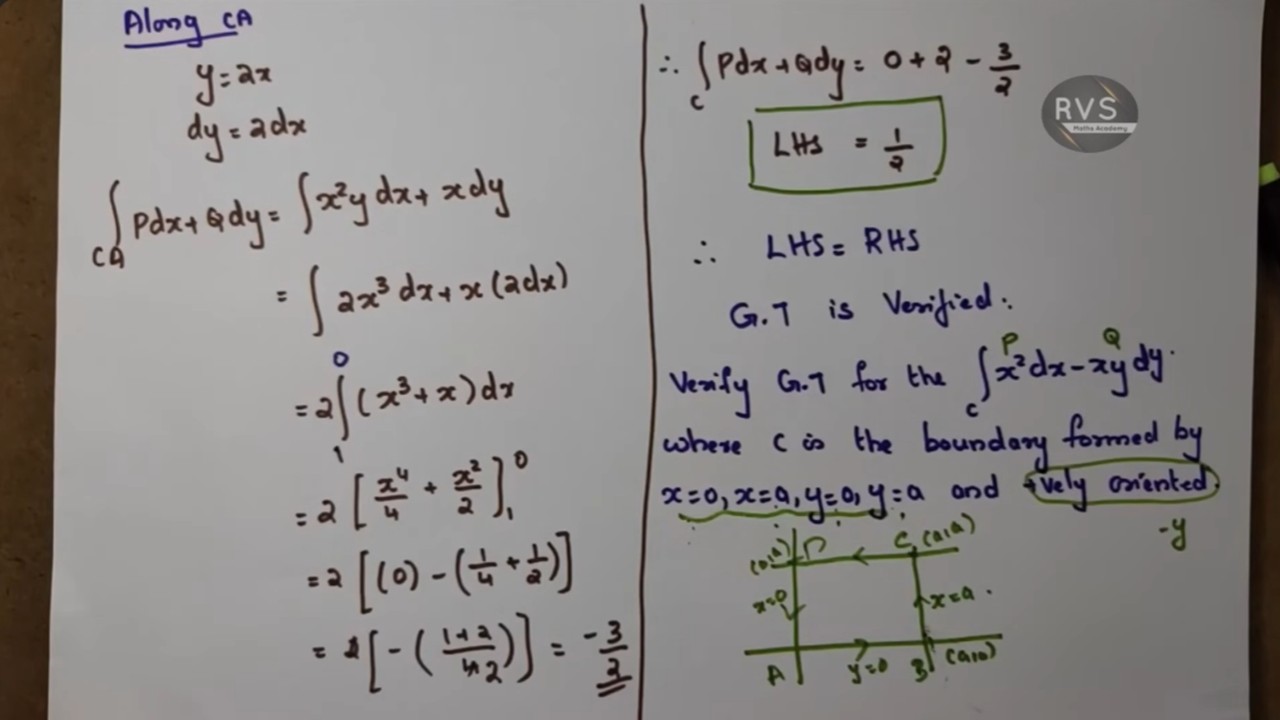 Along CA
y = 2x
dy = 2dx
∫CA Pdx + Qdy = ∫x²y dx + x dy
= ∫ 2x³ dx + x (2dx)
= 2 ∫₁⁰ (x³ + x) dx
= 2 [x⁴/4 + x²/2]₁⁰
= 2 [(0) - (1/4 + 1/2)]
= 2 [-((1+2)/42)] = -3/2
∴ ∫c Pdx + Qdy = 0 + 2 - 3/2
LHS = 1/2
∴ LHS = RHS
G.T is Verified.
P Q
Verify G.T for the ∫c x²dx - xy dy.
where C is the boundary formed by
x=0, x=a, y=0, y=a and +vely oriented
-y
(0,a) D C (a,a)
x=0 x=a
A y=0 B (a,0)
RVS
Maths Academy